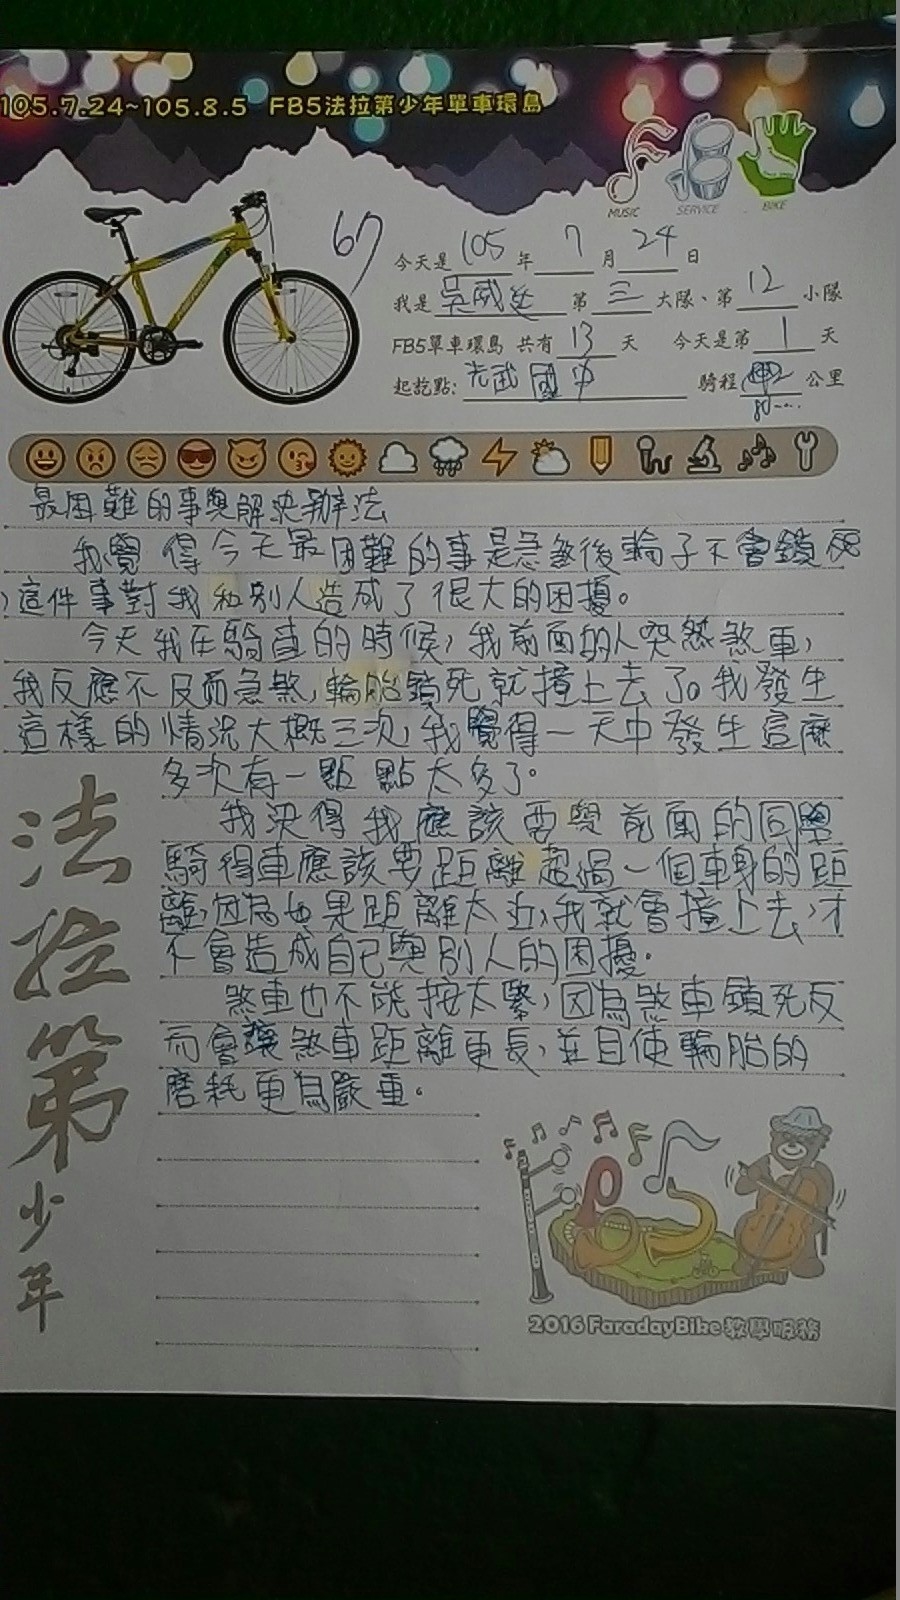 105.7.24~105.8.5 FB5法拉第少年單車環島
MUSIC SERVICE BIKE
67
今天是 105 年 7 月 24 日
我是 吳威廷 第 三 大隊、第 12 小隊
FB5單車環島 共有 13 天 今天是第 1 天
起訖點: 光武國中 騎程 公里
80....
最困難的事與解決辦法
我覺得今天最困難的事是急煞後輪子不會鎖死
,這件事對我和別人造成了很大的困擾。
今天我在騎車的時候,我前面的人突然煞車,
我反應不及而急煞,輪胎鎖死就撞上去了。我發生
這樣的情況大概三次,我覺得一天中發生這麼
多次有一點點太多了。
我決得我應該要與前面的同學
騎得車應該要距離超過一個車身的距
離,因為如果距離太近,我就會撞上去,才
不會造成自己與別人的困擾。
煞車也不能按太緊,因為煞車鎖死反
而會讓煞車距離更長,並且使輪胎的
磨耗更為嚴重。
法拉第少年
2016 FaradayBike教學服務